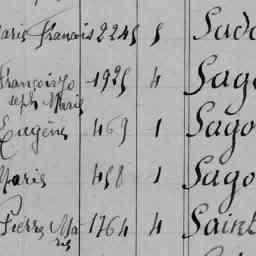 Marie François 2245 5 Sado
François Jo 1925 4 Sago
seph Marie
Eugène 469 1 Sago
Marie 458 1 Sago
Pierre Ma 1764 4 Saint
rie